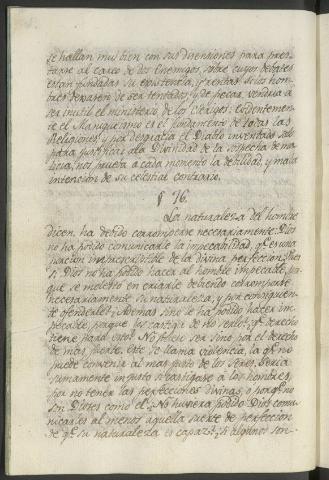 se hallan mui bien con sus disensiones para pres-
tarse al careo de dos Enemigos, sobre cuyos debates
están fundadas su existencia, y rentas. Si los hom-
bres dexasen de ser tentados, y de pecar, vendria a
ser inutil el ministerio de los Clerigos. Evidentemen-
te el Maniqueismo es el fundamento de todas las
Religiones; y por desgracia el Diablo inventado solo
para justificar a la Divinidad de la sospecha de ma-
licia, nos prueba a cada momento la debilidad, y mala
intencion de su celestial contrario.
§ 76.
La naturaleza del hombre
dicen, ha debido corromperse necesariamente: Dios
no ha podido comunicarle la impecabilidad, qe. es una
porcion imprescriptible de la divina perfeccion; Pues
si Dios no ha podido hacer al hombre impecable, por
que se metió en criarle debiendo corromperse
necesariamente su naturaleza, y por consiguien-
te ofenderle? Ademas sino le ha podido hacer im-
pecable, porque los castiga de no serlo? qe. derecho
tiene para esto? No puede ser sino por el derecho
de mas fuerte. Este se llama violencia, la qe. no
puede convenir al mas justo de los Seres. Sería
sumamente injusto si castigase a los hombres,
por no tener las perfecciones divinas, o porqe. no
son Dioses como él. ¿No hubiera podido Dios comu-
nicarles al menos aquella suerte de perfeccion
de qe. su naturaleza es capaz? Si algunos son